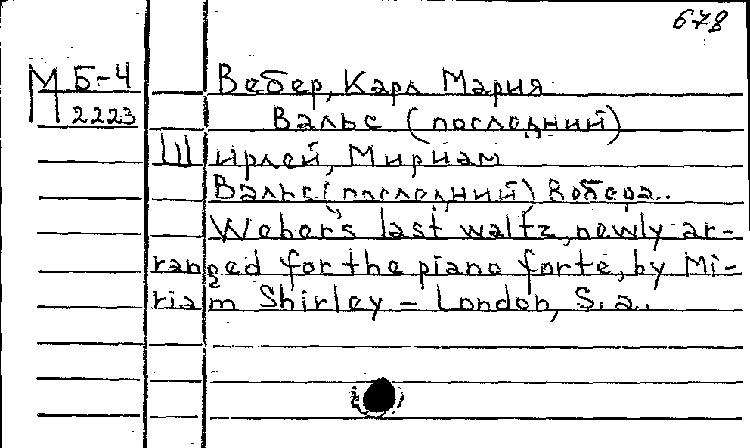 678
М Б-4
2223
Вебер, Карл Мария
Вальс (последний)
Ширлей, Мириам
Вальс (последний) Вебера..
Weber's last waltz, newly ar-
ranged for the piano forte, by Mi-
riam Shirley - London, S. a..